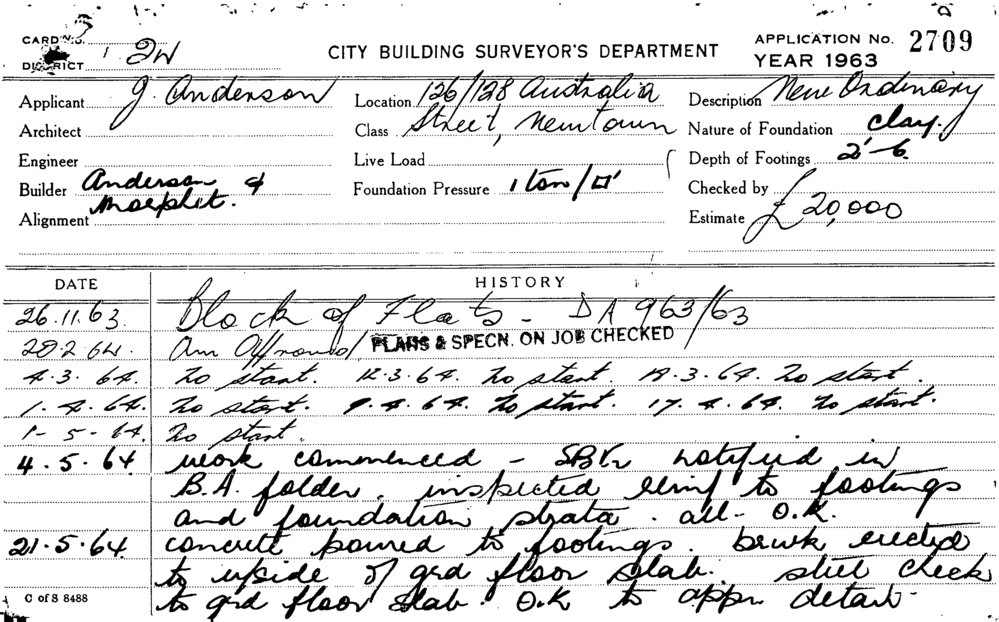 CARD No. 3
DISTRICT 2W
CITY BUILDING SURVEYOR'S DEPARTMENT
APPLICATION No. 2709
YEAR 1963
Applicant J. Anderson
Location 126/128 Australia
Description New Ordinary
Architect
Class Street, Newtown
Nature of Foundation clay.
Engineer
Live Load
Depth of Footings 2'-6
Builder Anderson &
Foundation Pressure 1 ton/□'
Checked by
Alignment
Estimate £20,000
DATE HISTORY
26.11.63 Block of Flats - DA 963/63
28.2.64. Approved PLANS & SPECN. ON JOB CHECKED
4.3.64. No start. 12.3.64. No start. 18.3.64. No start.
1.4.64. No start. 9.4.64. No start. 17.4.64. No start.
1-5-64. No start.
4.5.64 work commenced - notified in
B.A. folder. inspected to footings
and foundation strata. all- O.K.
21.5.64. concrete poured to footings. brwk erected
to upside of grd floor slab. steel check
to grd floor slab. O.K to appr. detail-
C of S 8488